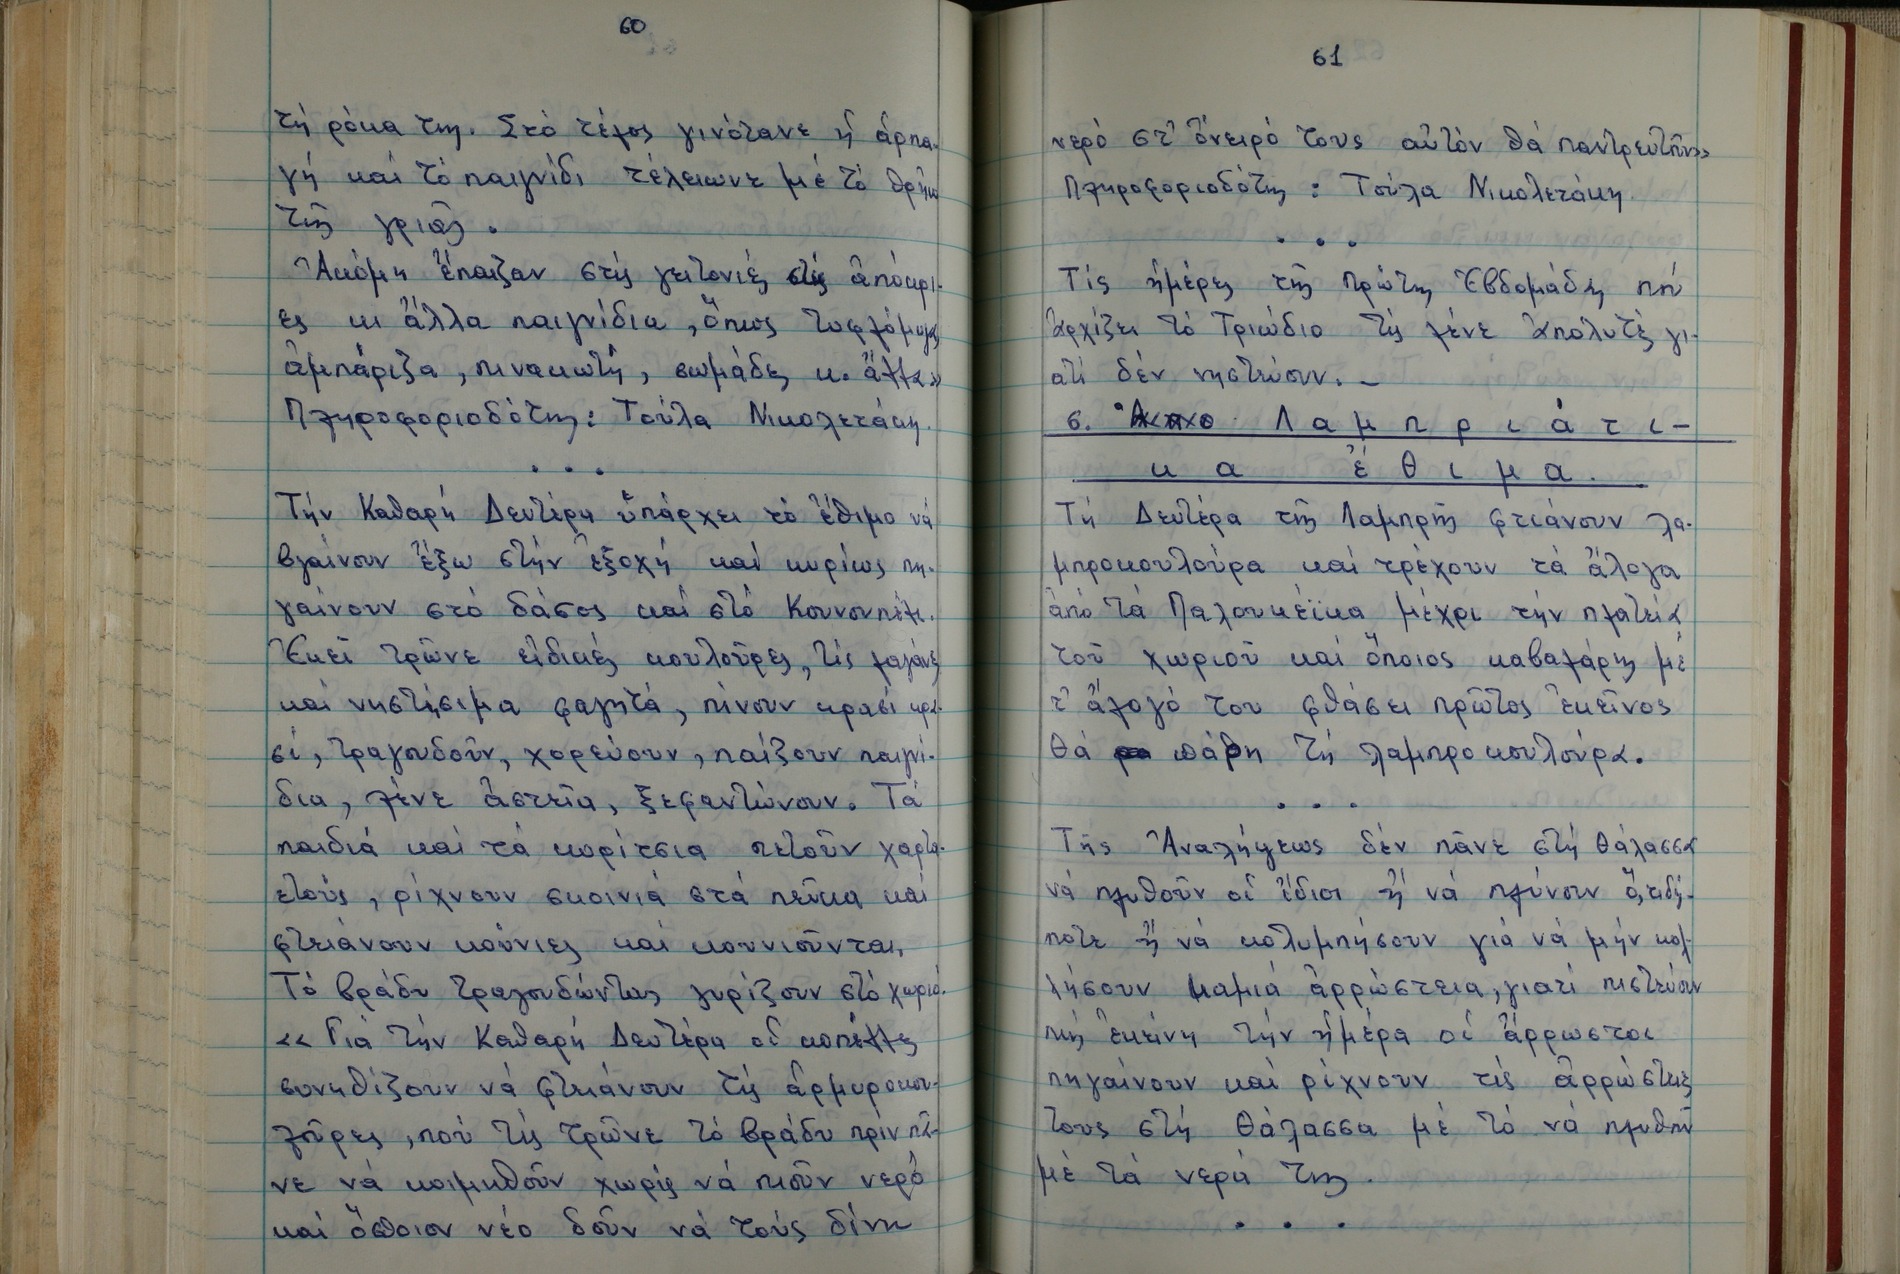 60
τή ρόκα της. Στό τέλος γινότανε ἡ ἁρπα-
γή καί τό παιγνίδι τέλειωνε μέ τό θρῆνο
τῆς γριᾶς.
Ἀκόμη ἔπαιζαν στίς γειτονιές τίς ἀπόκρι-
ες κι ἄλλα παιγνίδια, ὅπως τυφλόμυγα,
ἀμπάριζα, πινακωτή, σωμάδες κ. ἄλλα»
Πληροφοριοδότης: Τούλα Νικολετάκη.
...
Τήν Καθαρή Δευτέρα ὑπάρχει τό ἔθιμο νά
βγαίνουν ἔξω στήν ἐξοχή καί κυρίως πη-
γαίνουν στό δάσος καί στό Κουνουπέλι.
Ἐκεῖ τρῶνε εἰδικές κουλοῦρες, τίς λαγάνες
καί νηστήσιμα φαγητά, πίνουν κρασί κρα-
σί, τραγουδοῦν, χορεύουν, παίζουν παιγνί-
δια, λένε ἀστεῖα, ξεφαντώνουν. Τά
παιδιά καί τά κορίτσια πετοῦν χαρτα-
ετούς, ρίχνουν σκοινιά στά πεῦκα καί
φτειάνουν κούνιες καί κουνιοῦνται.
Τό βράδυ τραγουδώντας γυρίζουν στό χωριό.
«Γιά τήν Καθαρή Δευτέρα οἱ κοπέλλες
συνηθίζουν νά φτειάνουν τίς ἁρμυροκου-
λοῦρες, πού τίς τρῶνε τό βράδυ πρίν πᾶ-
νε νά κοιμηθοῦν χωρίς νά πιοῦν νερό
καί ὅποιον νέο δοῦν νά τούς δίνη
61
νερό στ' ὄνειρό τους αὐτόν θά παντρευτοῦν»
Πληροφοριοδότης: Τούλα Νικολετάκη.
...
Τίς ἡμέρες τῆς πρώτης ἑβδομάδας πού
ἀρχίζει τό Τριώδιο τίς λένε ἀπολυτές γι-
ατί δέν νηστεύουν. -
6. Λαμπριάτι-
κα ἔθιμα.
Τή Δευτέρα τῆς Λαμπρῆς φτιάνουν λα-
μπροκουλούρα καί τρέχουν τά ἄλογα
ἀπό τά Παλουκέϊκα μέχρι τήν πλατεία
τοῦ χωριοῦ καί ὅποιος καβαλάρης μέ
τ' ἄλογό του φθάσει πρῶτος ἐκεῖνος
θά πάρη τή λαμπροκουλούρα.
...
Τῆς Ἀναλήψεως δέν πᾶνε στή θάλασσα
νά πλυθοῦν οἱ ἴδιοι ἤ νά πλύνουν ὅ,τιδή-
ποτε ἤ νά κολυμπήσουν γιά νά μήν κολ-
λήσουν καμιά ἀρρώστεια, γιατί πιστεύουν
πώς ἐκείνη τήν ἡμέρα οἱ ἄρρωστοι
πηγαίνουν καί ρίχνουν τίς ἀρρώστιες
τους στή θάλασσα μέ τό νά πλυθοῦν
μέ τά νερά της.
...